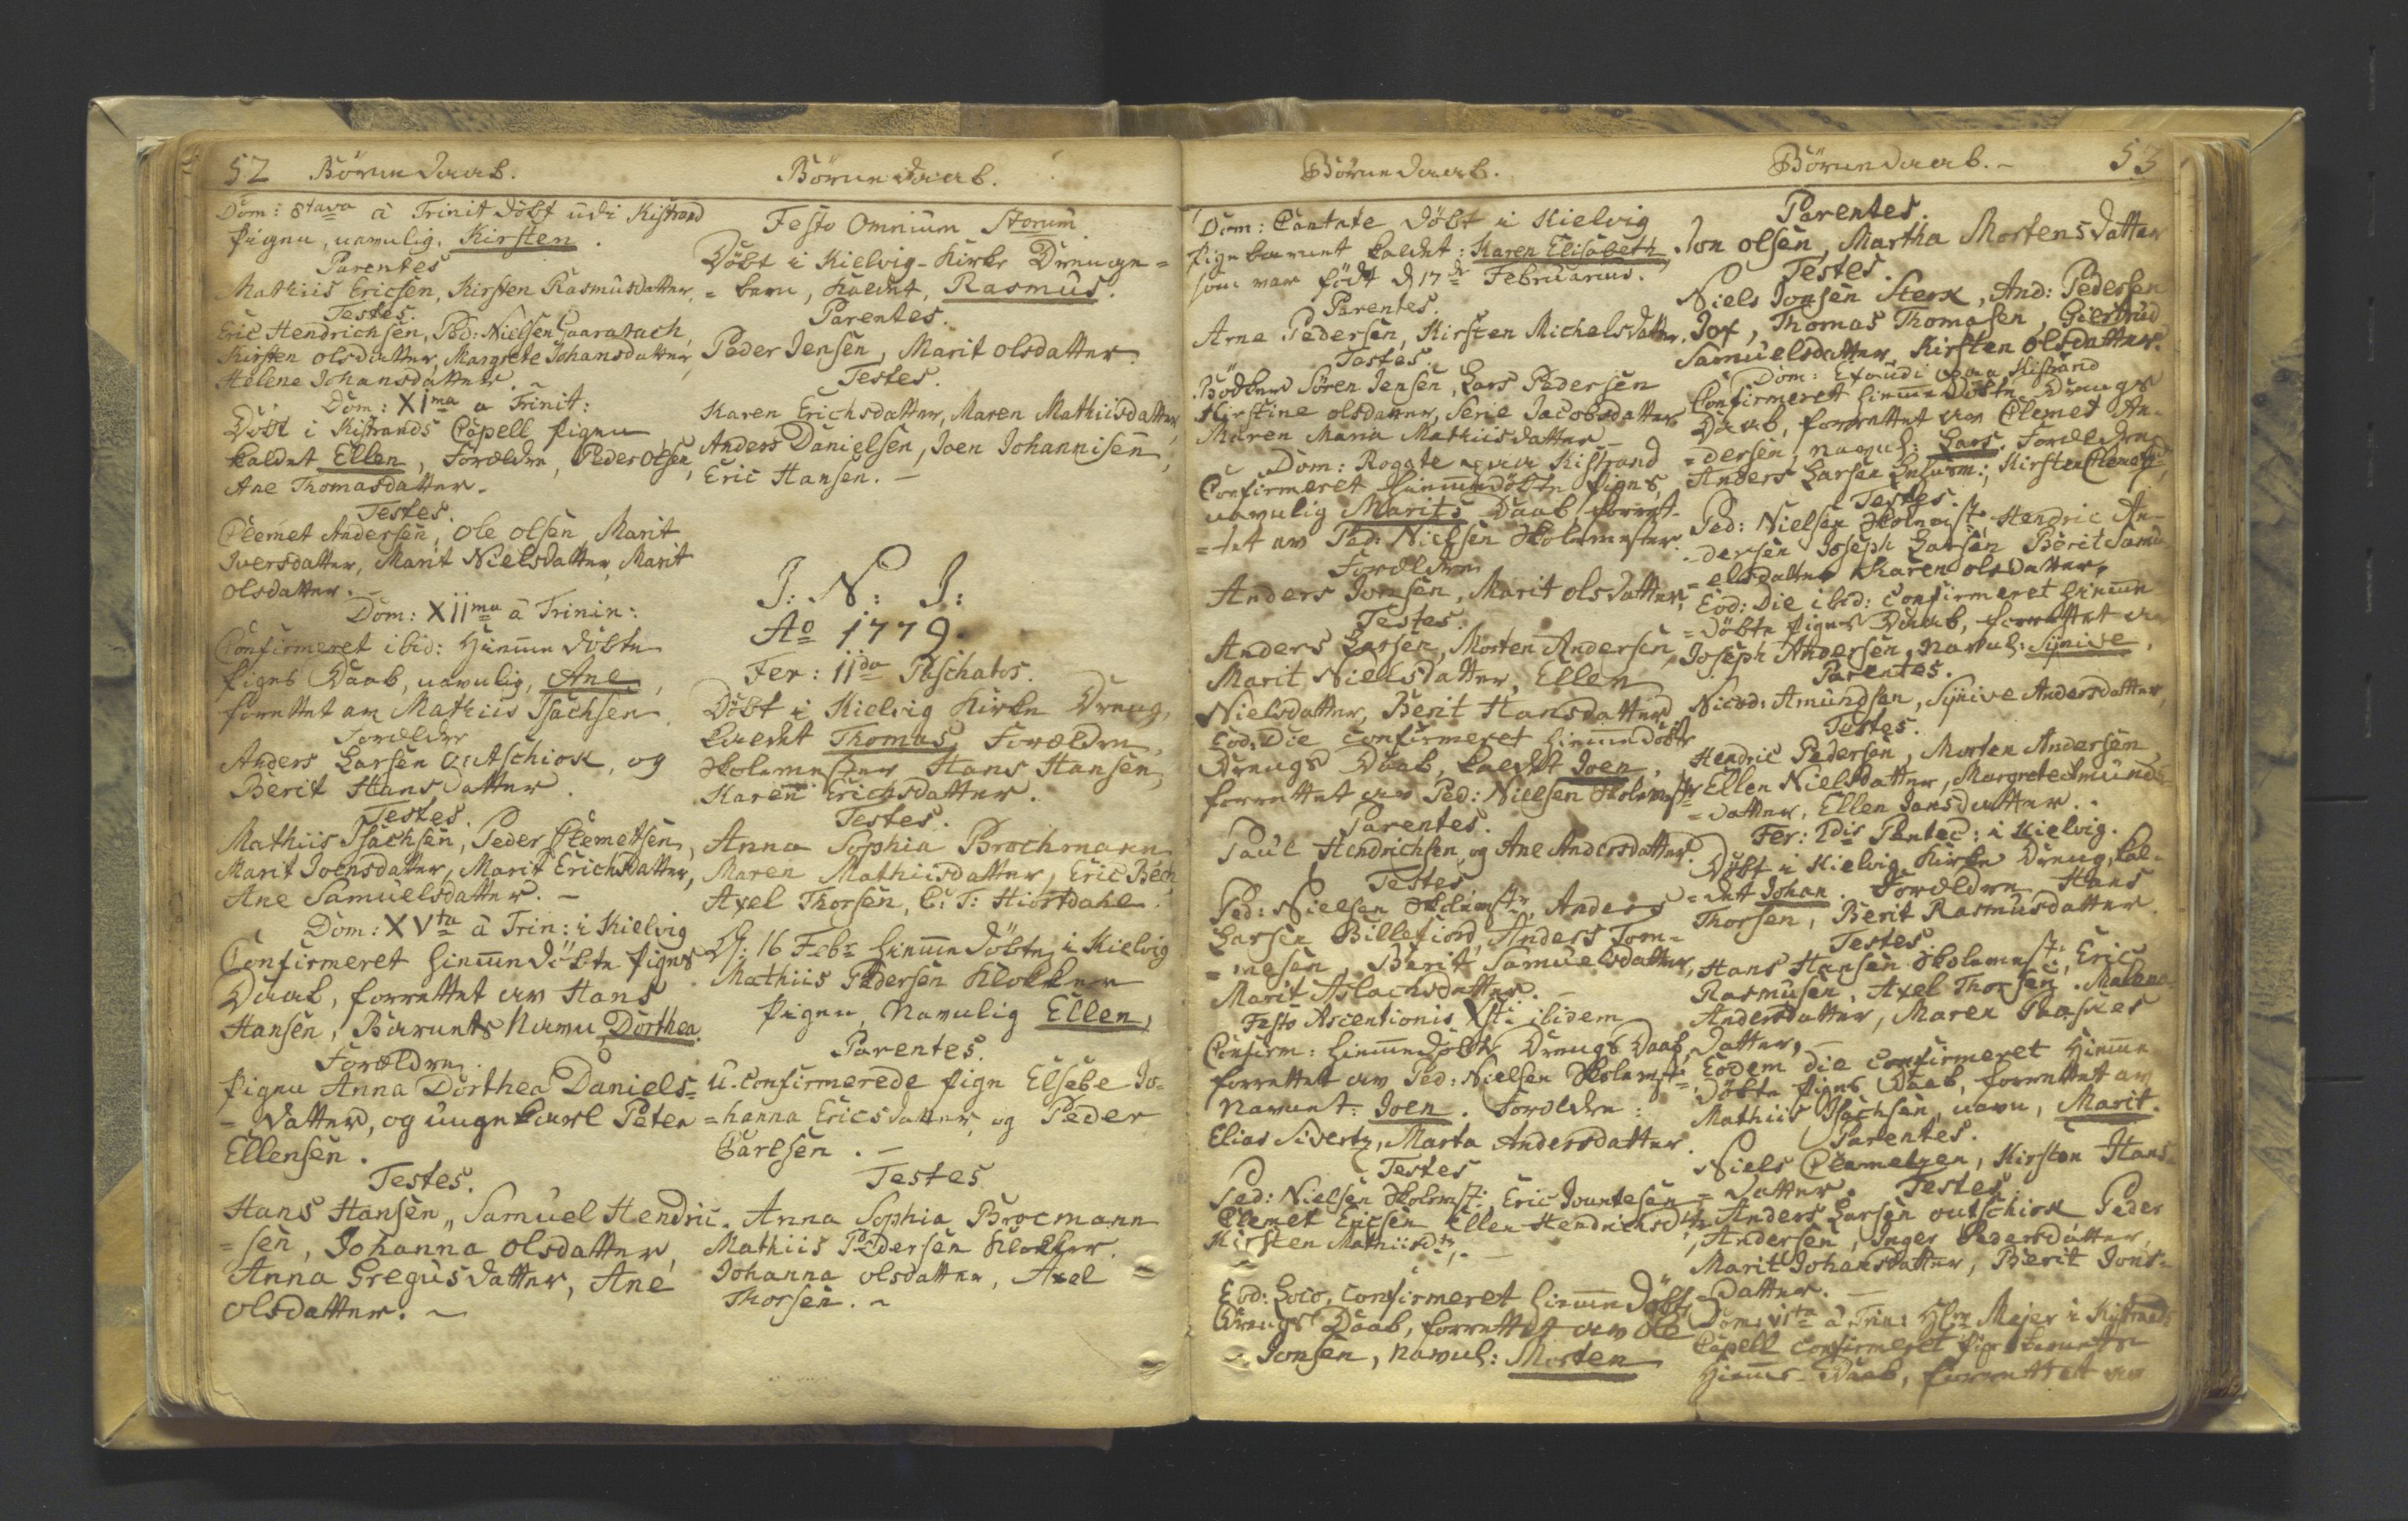 52 Börne Daab.
Dom: 8tava à Trinit döbt udi Kistrand
Pigen, navnlig. Kirsten.
Parentes
Mathiis Ericsen, Kirsten Rasmusdatter,
Testes.
Eric Hendrichsen, Ped: Nielsen
Kirsten olsdatter, Margrete Johansdatter,
Helene Johansdatter.
Dom: XIma a Trinit:
Döbt i Kistrands Capell Pigen
kaldet Ellen, Forældre, Peder Olsen,
Ane Thomasdatter.
Testes.
Clemet Andersen, Ole Olsen, Marit
Iversdatter, Marit Nielsdatter, Marit
Olsdatter.
Dom: XIIma à Trinin:
Confirmeret ibid: Hiemme döbte
Pigebs Daab, navnlig, Ane,
forrettet av Mathiis Isachsen,
Forældre
Anders Larsen outschiok, og
Berit Hansdatter.
Testes.
Mathiis Isachsen, Peder Clemetsen,
Marit Joensdatter, Marit Erichsdatter,
Ane Samuelsdatter. –
Dom: XVta à Trin: i Kielvig
Confirmeret hiemmedöbte Piges
Daab, forrettet av Hans
Hansen, Barnets Navn Dorthea.
Forældre.
Pigen Anna Dorthea Daniels=
=datter, og unge Karl Peter
Ellensen.
Testes.
Hans Hansen, Samuel Hendric-
=sen, Johanna olsdatter,
Anna Gregusdatter, Ane
olsdatter. –
Börne Daab.
Festo Omnium Storum.
Döbt i Kielvig-Kirke Drenge=
=barn, kaldet, Rasmus.
Parentes.
Peder Jensen, Marit olsdatter.
Testes.
Karen Erichsdatter, Maren Mathiisdatter,
Anders Danielsen, Joen Johannisen,
Eric Hansen. –
I: N: I:
Ao 1779.
Fer: IIda Paschatos.
Döbt i Kielvig Kirke Dreng,
kaldet Thomas, Forældre,
Skolemester Hans Hansen,
Karen Erichsdatter.
Testes.
Anna Sophia Brochmann
Maren Mathiisdatter, Eric Bech
Axel Thorsen, C: T: Hiortdahl.
D: 16 Febr hiemmedöbte i Kielvig
Mathiis Pedersen Klokker
Pigen, Navnlig Ellen,
Parentes.
U-confirmerede Pige Elsebe Jo=
=hanna Ericsdatter, og Peder
Carlsen. –
Testes
Anna Sophia Brocmann
Mathiis Pedersen Klokker.
Johanna olsdatter, Axel
Thorsen. –
Börne Daab.
Dom: Cantate döbt i Kielvig
Pigebarnet kaldet: Karen Elisabeth,
som var födt d 17de Februarius.
Parentes.
Arne Pedersen, Kirsten Michelsdatter.
Testes.
Bödker Sören Jensen, Lars Pedersen
Kirstine olsdatter, Serie Jacobsdatter
Maren Maria Mathiisdatter –
Dom: Rogate paa Kistrand
Confirmeret hiemmedöbte Piges,
navnlig Marits Daab forret-
=tet av Ped: Nielsen Skolemester.
Forældre
Anders Jonsen, Marit olsdatter,
Testes.
Anders Larsen, Morten Andersen
Marit Nielsdatter, Ellen
Nielsdatter, Berit Hansdatter
Eod: Die confirmeret hiemmedöbte
Drengs Daab, kaldet Joen,
forrettet av Ped: Nielsen Skolemestr
Parentes.
Paul Hendrichsen, og Ane Andersdatter.
Testes
Ped: Nielsen Skolemestr, Anders
Larsen Billefiord, Anders Tom=
=mesen, Berit Samuelsdatter,
Marit Aslachsdatter. –
Festo Ascentionis Xsti ibidem
Confirm: hiemmedöbte Drengs Daab,
forrettet av Ped: Nielsen Skolemst:
Navnet: Joen. Forældre:
Elias Sivertz, Marta Andersdatter.
Testes
Ped: Nielsen Skolemst: Eric
Clemet Ericsen Ellen Hendrichsdtr
Kirsten Mathiisdtr. –
Eod: Loco, confirmeret hiemmedöbt
Drengs Daab, forrettet av ole
Jonsen, navnl: Morten
Börne Daab. – 53
Parentes.
Jon olsen, Martha Mortensdatter
Testes.
Niels Jonsen Sterk, And: Pedersen
Jox, Thomas Thomasen, Giertrud
Samuelsdatter, Kirsten olsdatter.
Dom: Exaudi paa Kistrand
Confirmeret hiemmedöbte Drengs
Daab, forrettet av Clemet An-
=dersen, navnl: Lars. Forældre
Anders Larsen, Kirsten
Testes.
Ped: Nielsen Skolemst: Hendric An-
=dersen Joseph Larsen Berit Samu
=elsdatter Karen olsdatter.
Eod: Die ibid: Confirmeret hiemme
=döbte Piges Daab, forrettet av
Joseph Andersen, Navnl: Synive.
Parentes.
Nicod: Amundsen, Synive Andersdatter,
Testes.
Hendric Pedersen, Morten Andersen,
Ellen Nielsdatter, Margrete Amunds=
=datter, Ellen Jonsdatter. –
Fer: 2dis Pentec: i Kielvig.
Döbt i Kielvig Kirke Dreng, kal-
=det Johan. Forældre Hans
Thorsen, Berit Rasmusdatter.
Testes
Hans Hansen Skolemest:, Eric
Rasmusen, Axel Thorsen. Malena
Andersdatter, Maren
datter, –
Eodem die confirmeret hiemme
döbte Piges Daab, forrettet av
Mathiis Isachsen, navn, Marit.
Parentes.
Niels Clemetzen, Kirsten Hans
=datter. Testes
Anders Larsen outschiok Peder
Andersen, Inger Pedersdatter,
Marit Johansdatter, Berit Jons=
=datter. –
Dom: VIta à Trin: Hr: Mejer i Kistrands
Capell confirmeret Pigebarnets
Hiemme-Daab, forrettet av